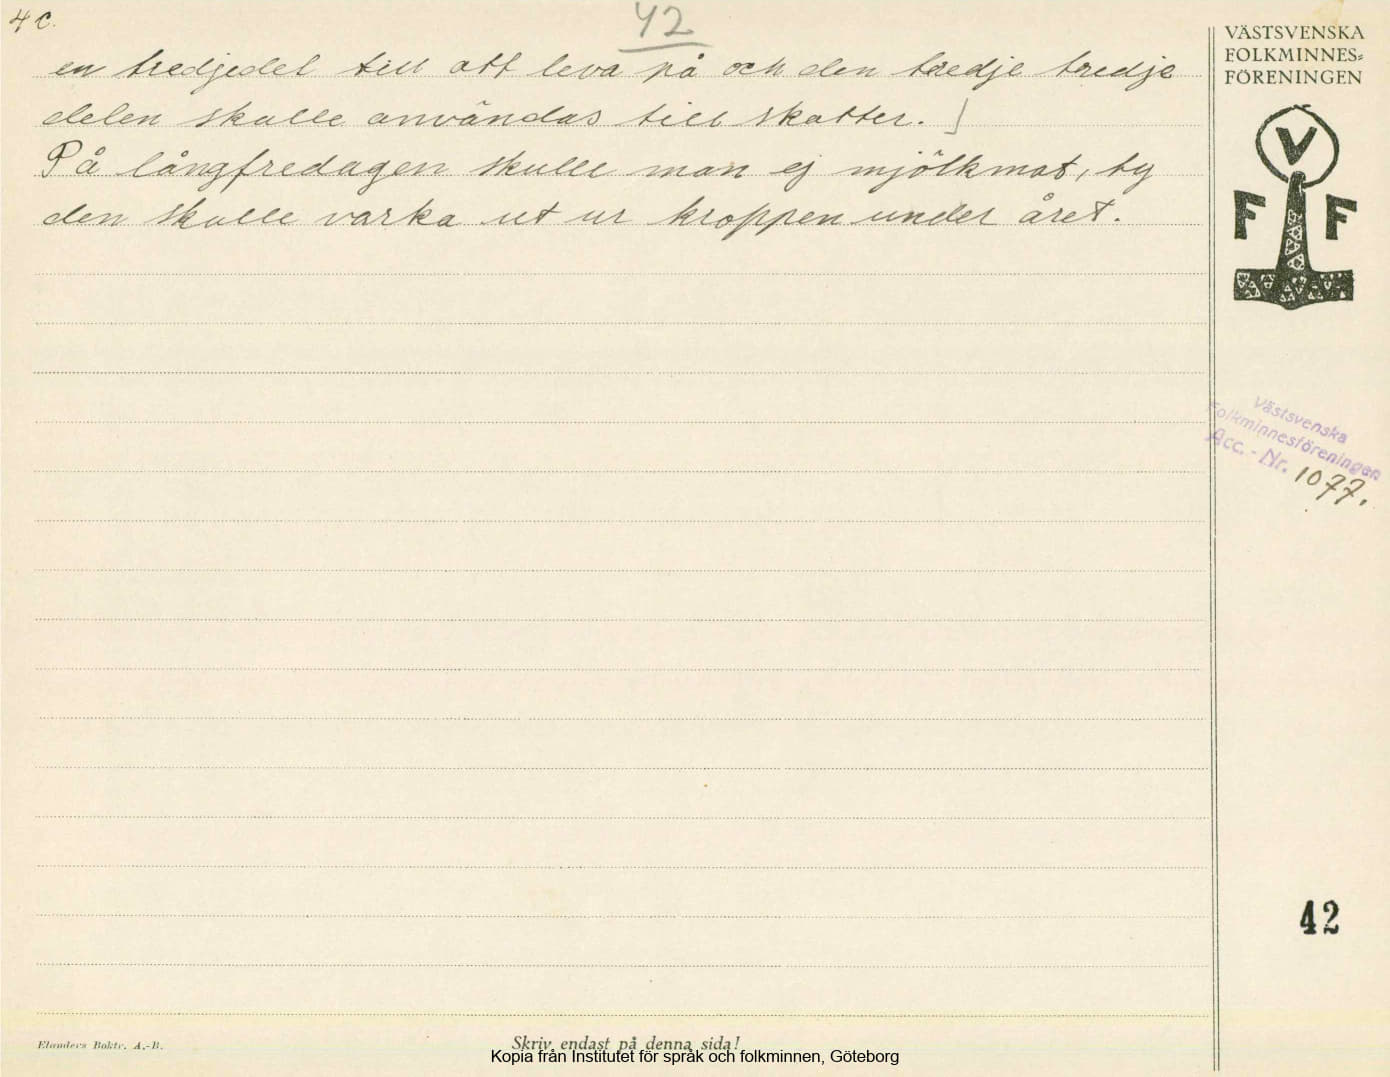 4 c.
42
en tredjedel till att leva på och den tredje tredje
delen skulle användas till skatter.
På långfredagen skulle man ej mjölkmat, ty
den skulle varka ut ur kroppen under året.
VÄSTSVENSKA
FOLKMINNES=
FÖRENINGEN
V
F F
Västsvenska
Folkminnesföreningen
Acc.-Nr. 1077.
42
Elanders Boktr. A.-B.
Skriv endast på denna sida!
Kopia från Institutet för språk och folkminnen, Göteborg